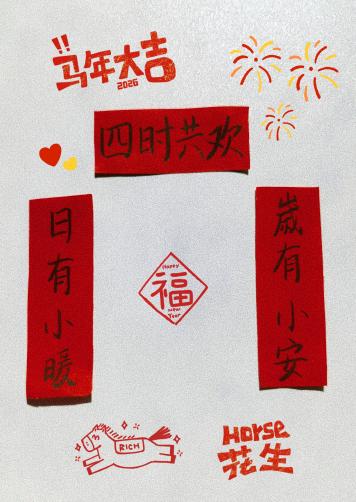 !!马年大吉
2026
四时共欢
岁有小安
日有小暖
Happy
福
New
Year
RICH
Horse
花生